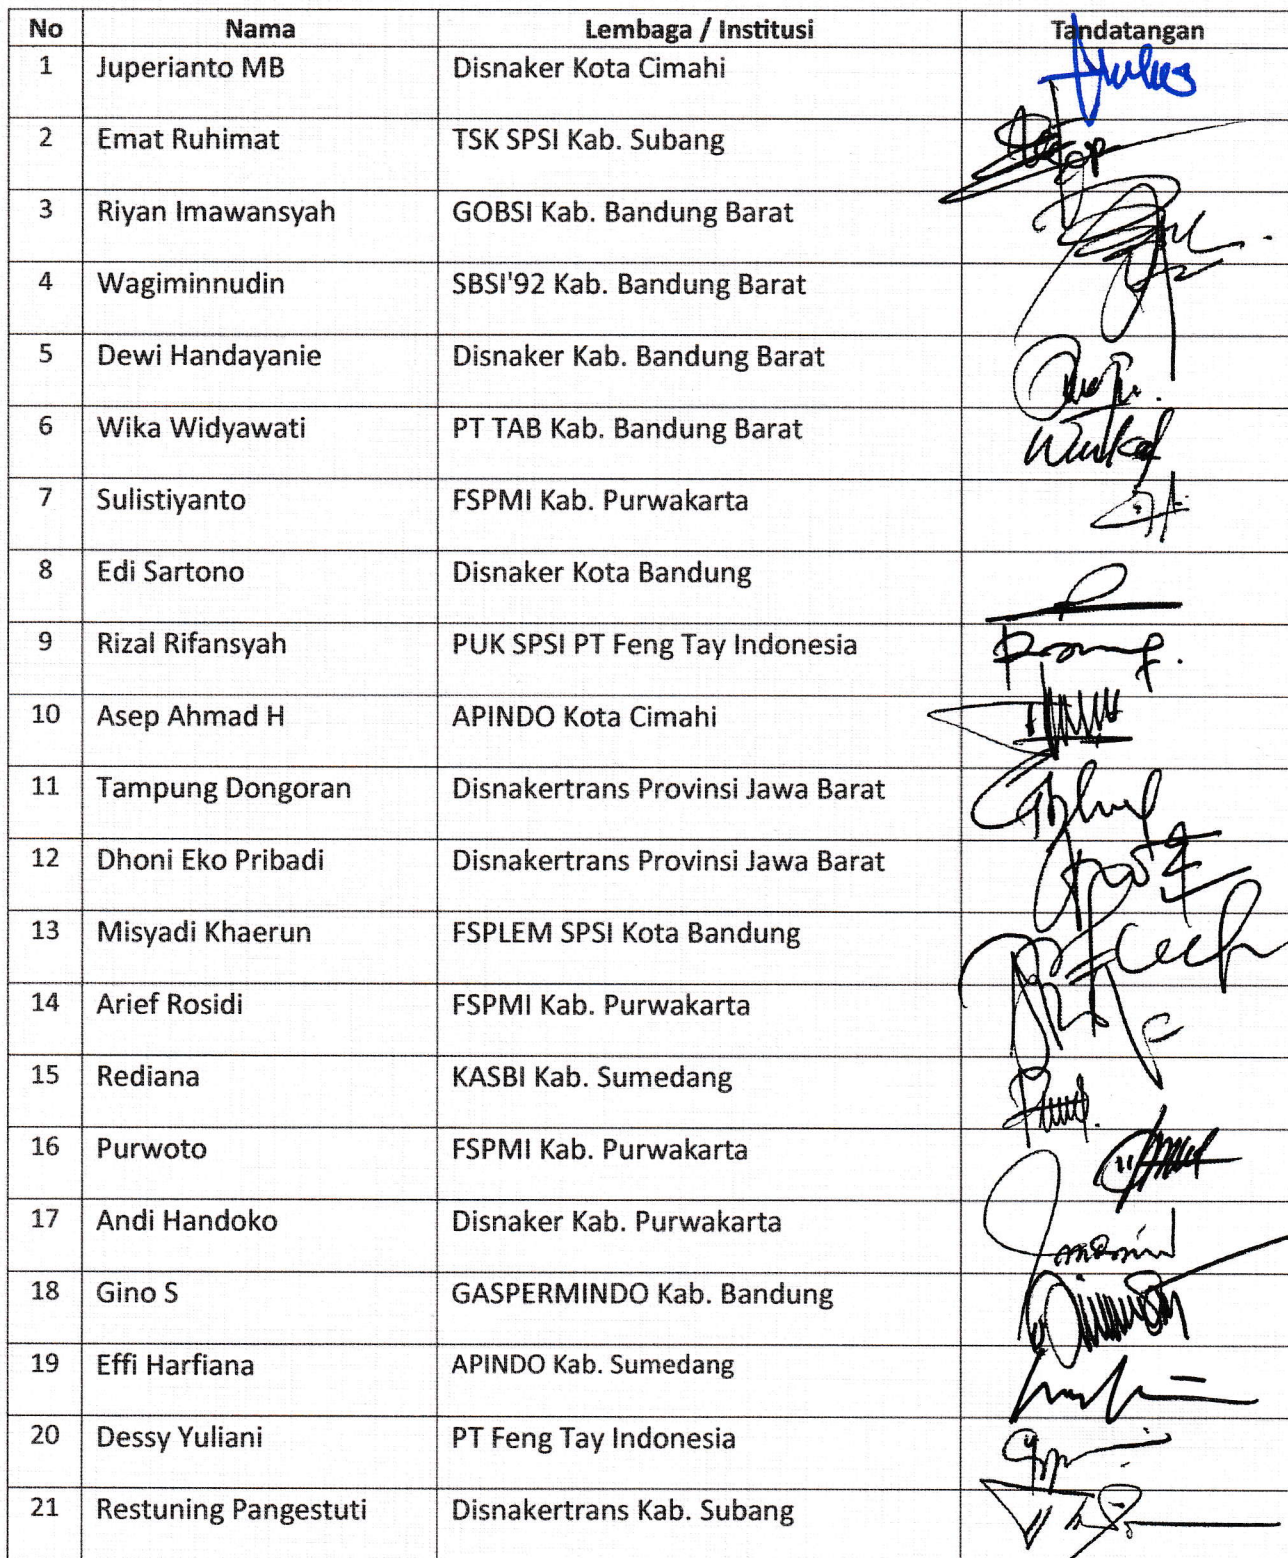 No Nama Lembaga / Institusi Tandatangan
1 Juperianto MB Disnaker Kota Cimahi
2 Emat Ruhimat TSK SPSI Kab. Subang
3 Riyan Imawansyah GOBSI Kab. Bandung Barat
4 Wagiminnudin SBSI'92 Kab. Bandung Barat
5 Dewi Handayanie Disnaker Kab. Bandung Barat
6 Wika Widyawati PT TAB Kab. Bandung Barat
7 Sulistiyanto FSPMI Kab. Purwakarta
8 Edi Sartono Disnaker Kota Bandung
9 Rizal Rifansyah PUK SPSI PT Feng Tay Indonesia
10 Asep Ahmad H APINDO Kota Cimahi
11 Tampung Dongoran Disnakertrans Provinsi Jawa Barat
12 Dhoni Eko Pribadi Disnakertrans Provinsi Jawa Barat
13 Misyadi Khaerun FSPLEM SPSI Kota Bandung
14 Arief Rosidi FSPMI Kab. Purwakarta
15 Rediana KASBI Kab. Sumedang
16 Purwoto FSPMI Kab. Purwakarta
17 Andi Handoko Disnaker Kab. Purwakarta
18 Gino S GASPERMINDO Kab. Bandung
19 Effi Harfiana APINDO Kab. Sumedang
20 Dessy Yuliani PT Feng Tay Indonesia
21 Restuning Pangestuti Disnakertrans Kab. Subang